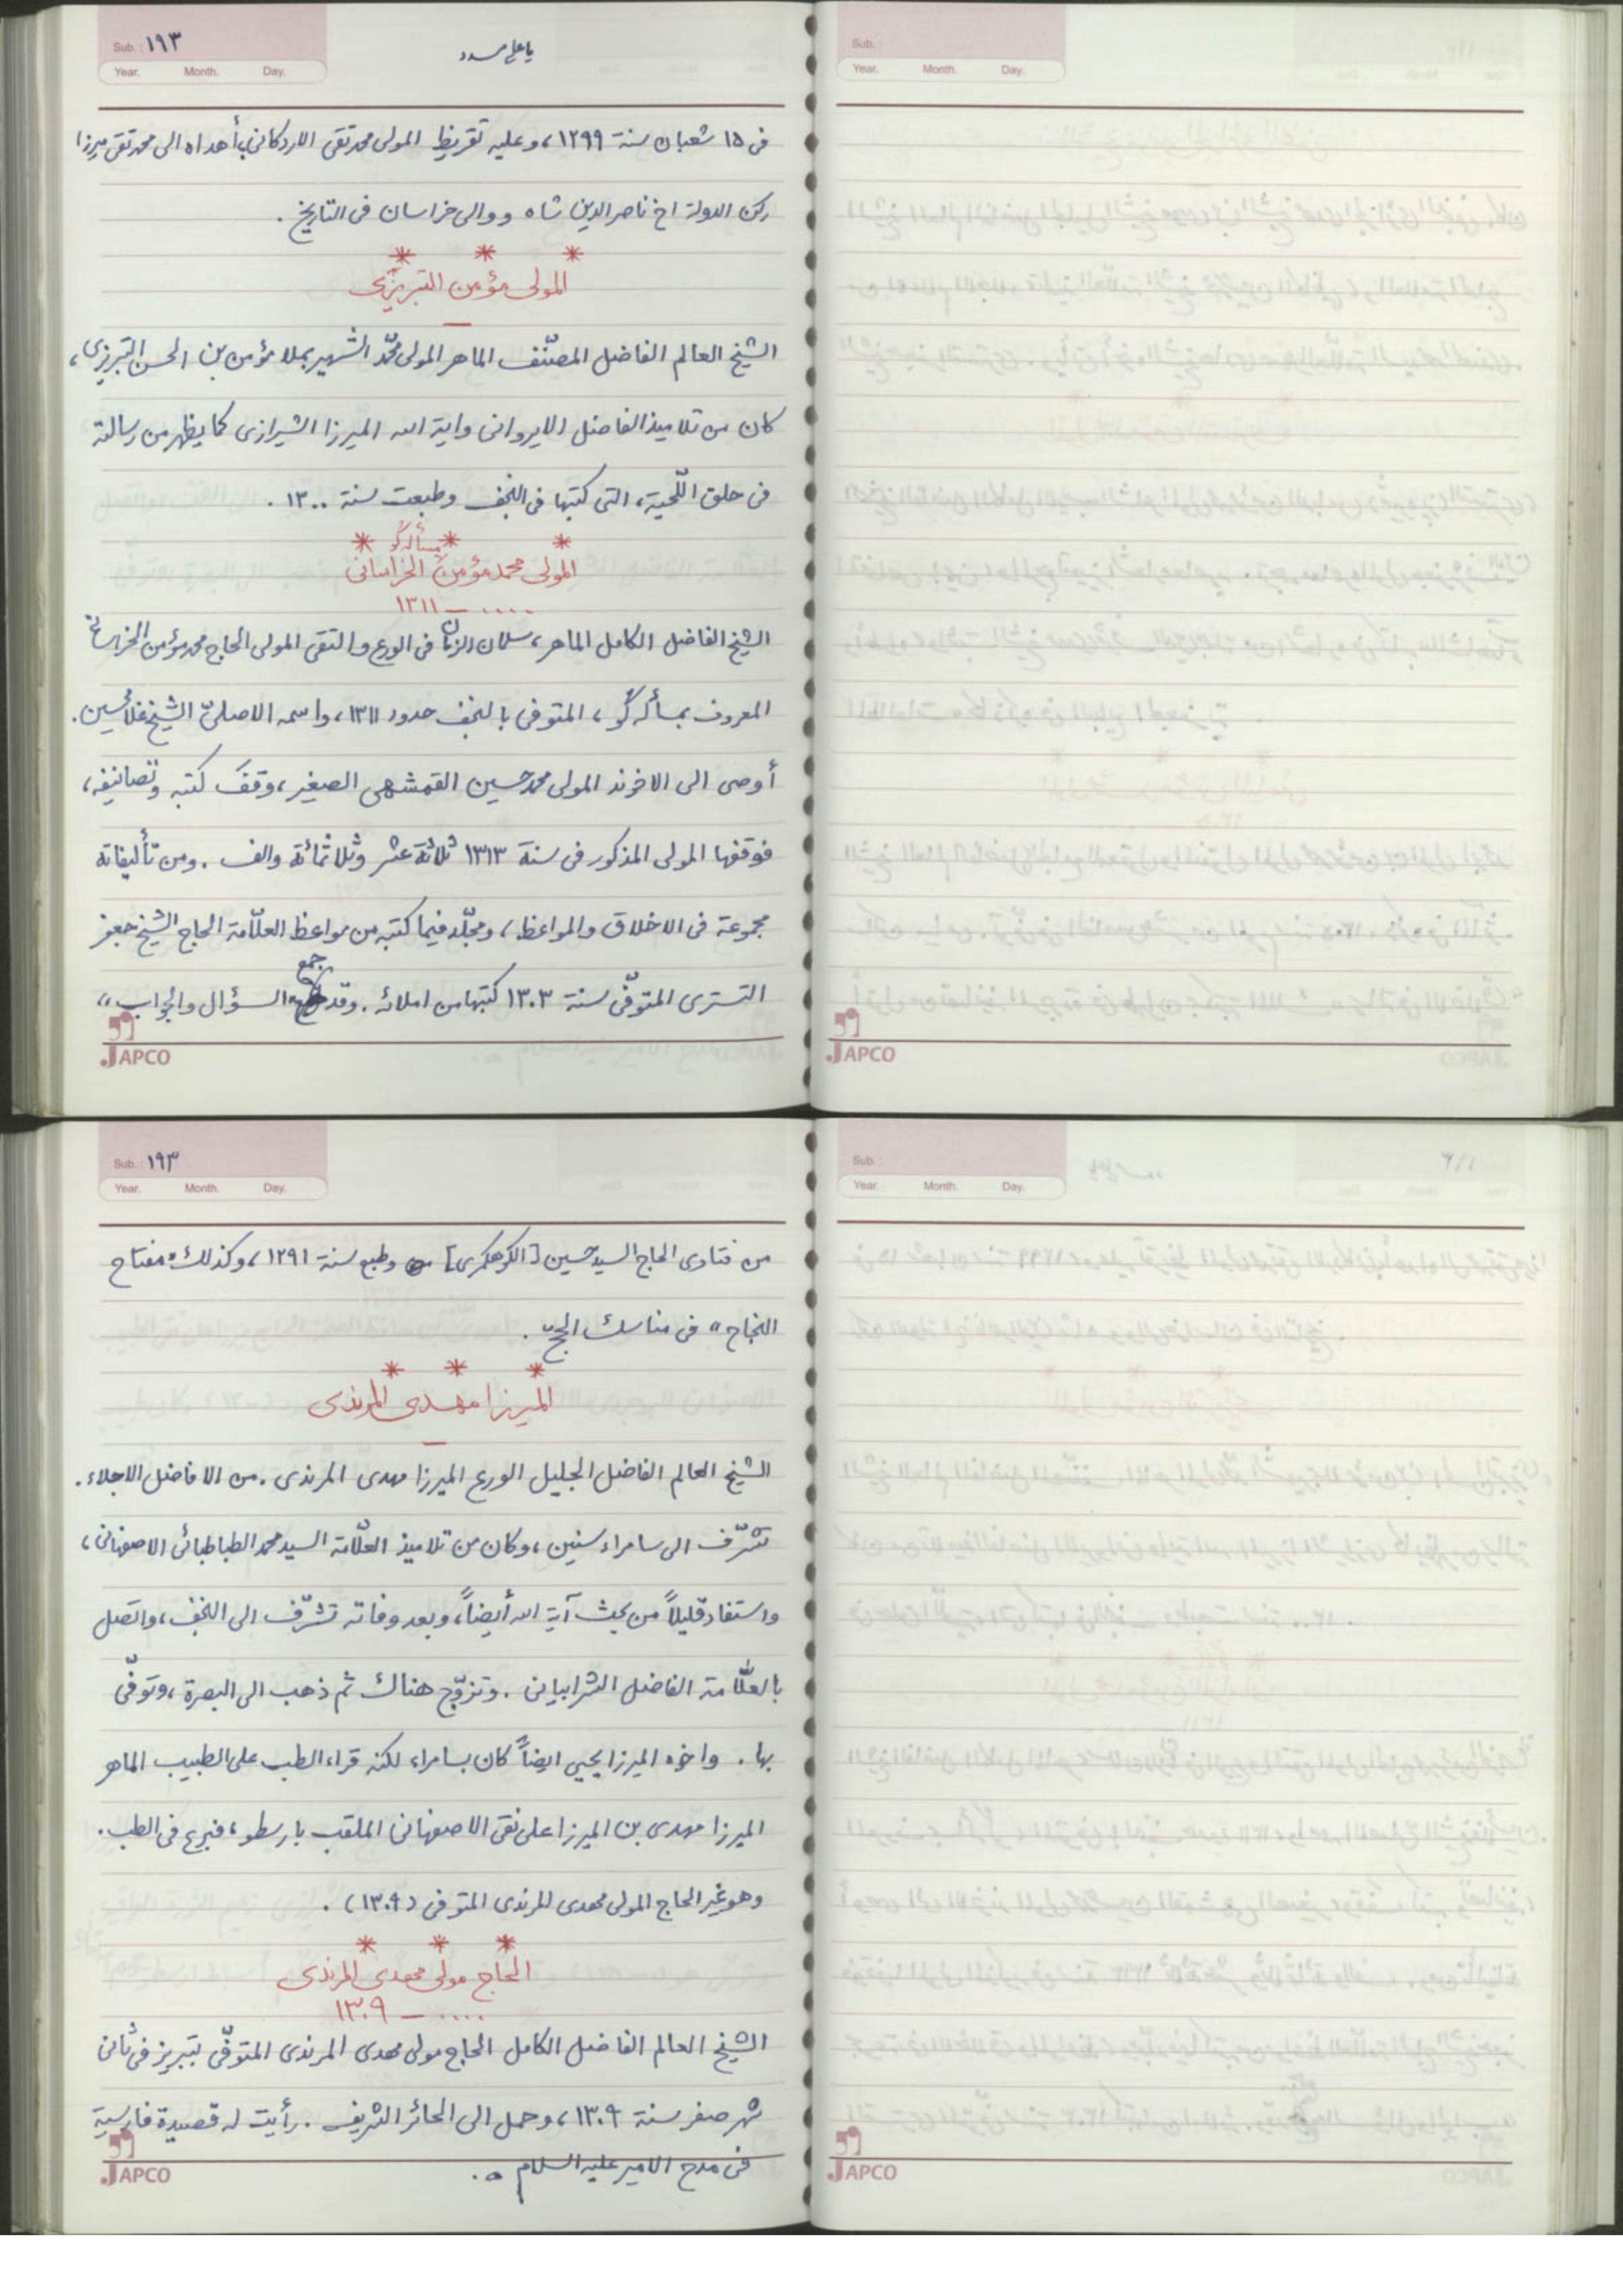 Sub. : ١٩٣
Year. Month. Day.
يا علي مدد
في ١٥ شعبان سنة ١٢٩٩، وعليه تقريظ المولى محمد تقي الاردكاني، أهداه الى محمد تقي ميرزا
ركن الدولة اخ ناصر الدين شاه ووالي خراسان في التاريخ .
* * *
المولى مؤمن التبريزي
ـ
الشيخ العالم الفاضل المصنّف الماهر المولى محمّد الشهير بملا مؤمن بن الحسن التبريزي،
كان من تلاميذ الفاضل الايرواني واية الله الميرزا الشيرازي كما يظهر من رسالته
في حلق اللّحية، التي كتبها في النجف وطبعت سنة ١٣٠٠ .
* * *
المولى محمد مؤمن الخراساني
مسأله گو
.... ـ ١٣١١
الشيخ الفاضل الكامل الماهر، سلمان الزمان في الورع والتقى المولى الحاج محمد مؤمن الخراساني
المعروف بمسأله گو، المتوفى بالنجف حدود ١٣١١، واسمه الاصليّ الشيخ غلامحسين.
أوصى الى الاخوند المولى محمد حسين القمشهي الصغير، وقف كتبه وتصانيفه،
فوقفها المولى المذكور في سنة ١٣١٣ ثلاثة عشر وثلاثمائة والف . ومن تأليفاته
مجموعة في الاخلاق والمواعظ، ومجلّد فيما كتبه من مواعظ العلّامة الحاج الشيخ جعفر
التستري المتوفّى سنة ١٣٠٣ كتبها من املائه . وقد جمع «السؤال والجواب»
JAPCO
Sub. :
Year. Month. Day.
JAPCO
Sub. : ١٩٣
Year. Month. Day.
من فتاوى الحاج السيد حسين [الكوهكمري] وطبع سنة ١٢٩١، وكذلك «مفتاح
النجاح» في مناسك الحجّ .
* * *
الميرزا مهدي المرندي
ـ
الشيخ العالم الفاضل الجليل الورع الميرزا مهدي المرندي . من الافاضل الاجلاء .
تشرّف الى سامراء سنين، وكان من تلاميذ العلّامة السيد محمد الطباطبائي الاصفهاني،
واستفاد قليلاً من بحث آية الله أيضاً، وبعد وفاته تشرّف الى النجف، واتصل
بالعلّامة الفاضل الشرابياني . وتزوّج هناك ثم ذهب الى البصرة، وتوفّى
بها . واخوه الميرزا يحيى ايضاً كان بسامراء لكنه قراء الطب على الطبيب الماهر
الميرزا مهدي بن الميرزا علي نقي الاصفهاني الملقب بارسطو، فبرع في الطب .
وهو غير الحاج المولى مهدي المرندي المتوفى (١٣٠٩) .
* * *
الحاج مولى مهدي المرندي
.... ـ ١٣٠٩
الشيخ العالم الفاضل الكامل الحاج مولى مهدي المرندي المتوفّى بتبريز في ثاني
شهر صفر سنة ١٣٠٩، وحمل الى الحائر الشريف . رأيت له قصيدة فارسية
في مدح الامير عليه السلام .
JAPCO
Sub. :
Year. Month. Day.
JAPCO